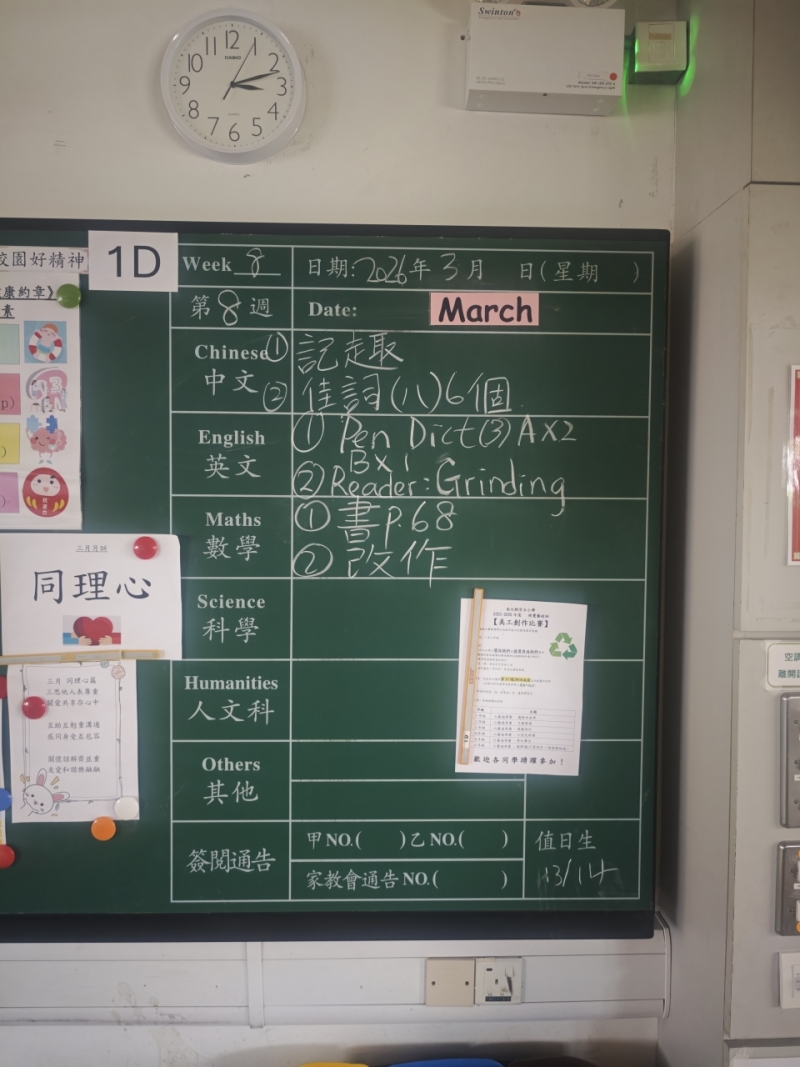 12
1
2
3
4
5
6
7
8
9
10
11
CASIO
Swinton
校園好精神
康約章》
素
1D
Week 8
日期: 2026年 3月 日(星期 )
第 8 週
Date:
March
Chinese
中文
① 記趣
② 佳詞(八)6個
English
英文
① Pen Dict(3) A×2
B×1
② Reader: Grinding
Maths
數學
① 書p.68
② 改作
Science
科學
Humanities
人文科
Others
其他
簽閱通告
甲NO.( )乙NO.( )
家教會通告NO.( )
值日生
13/14
【美工創作比賽】
歡迎各同學踴躍參加!
同理心
三月 同理心篇
關愛共享存心中
p)
)
空調
離開